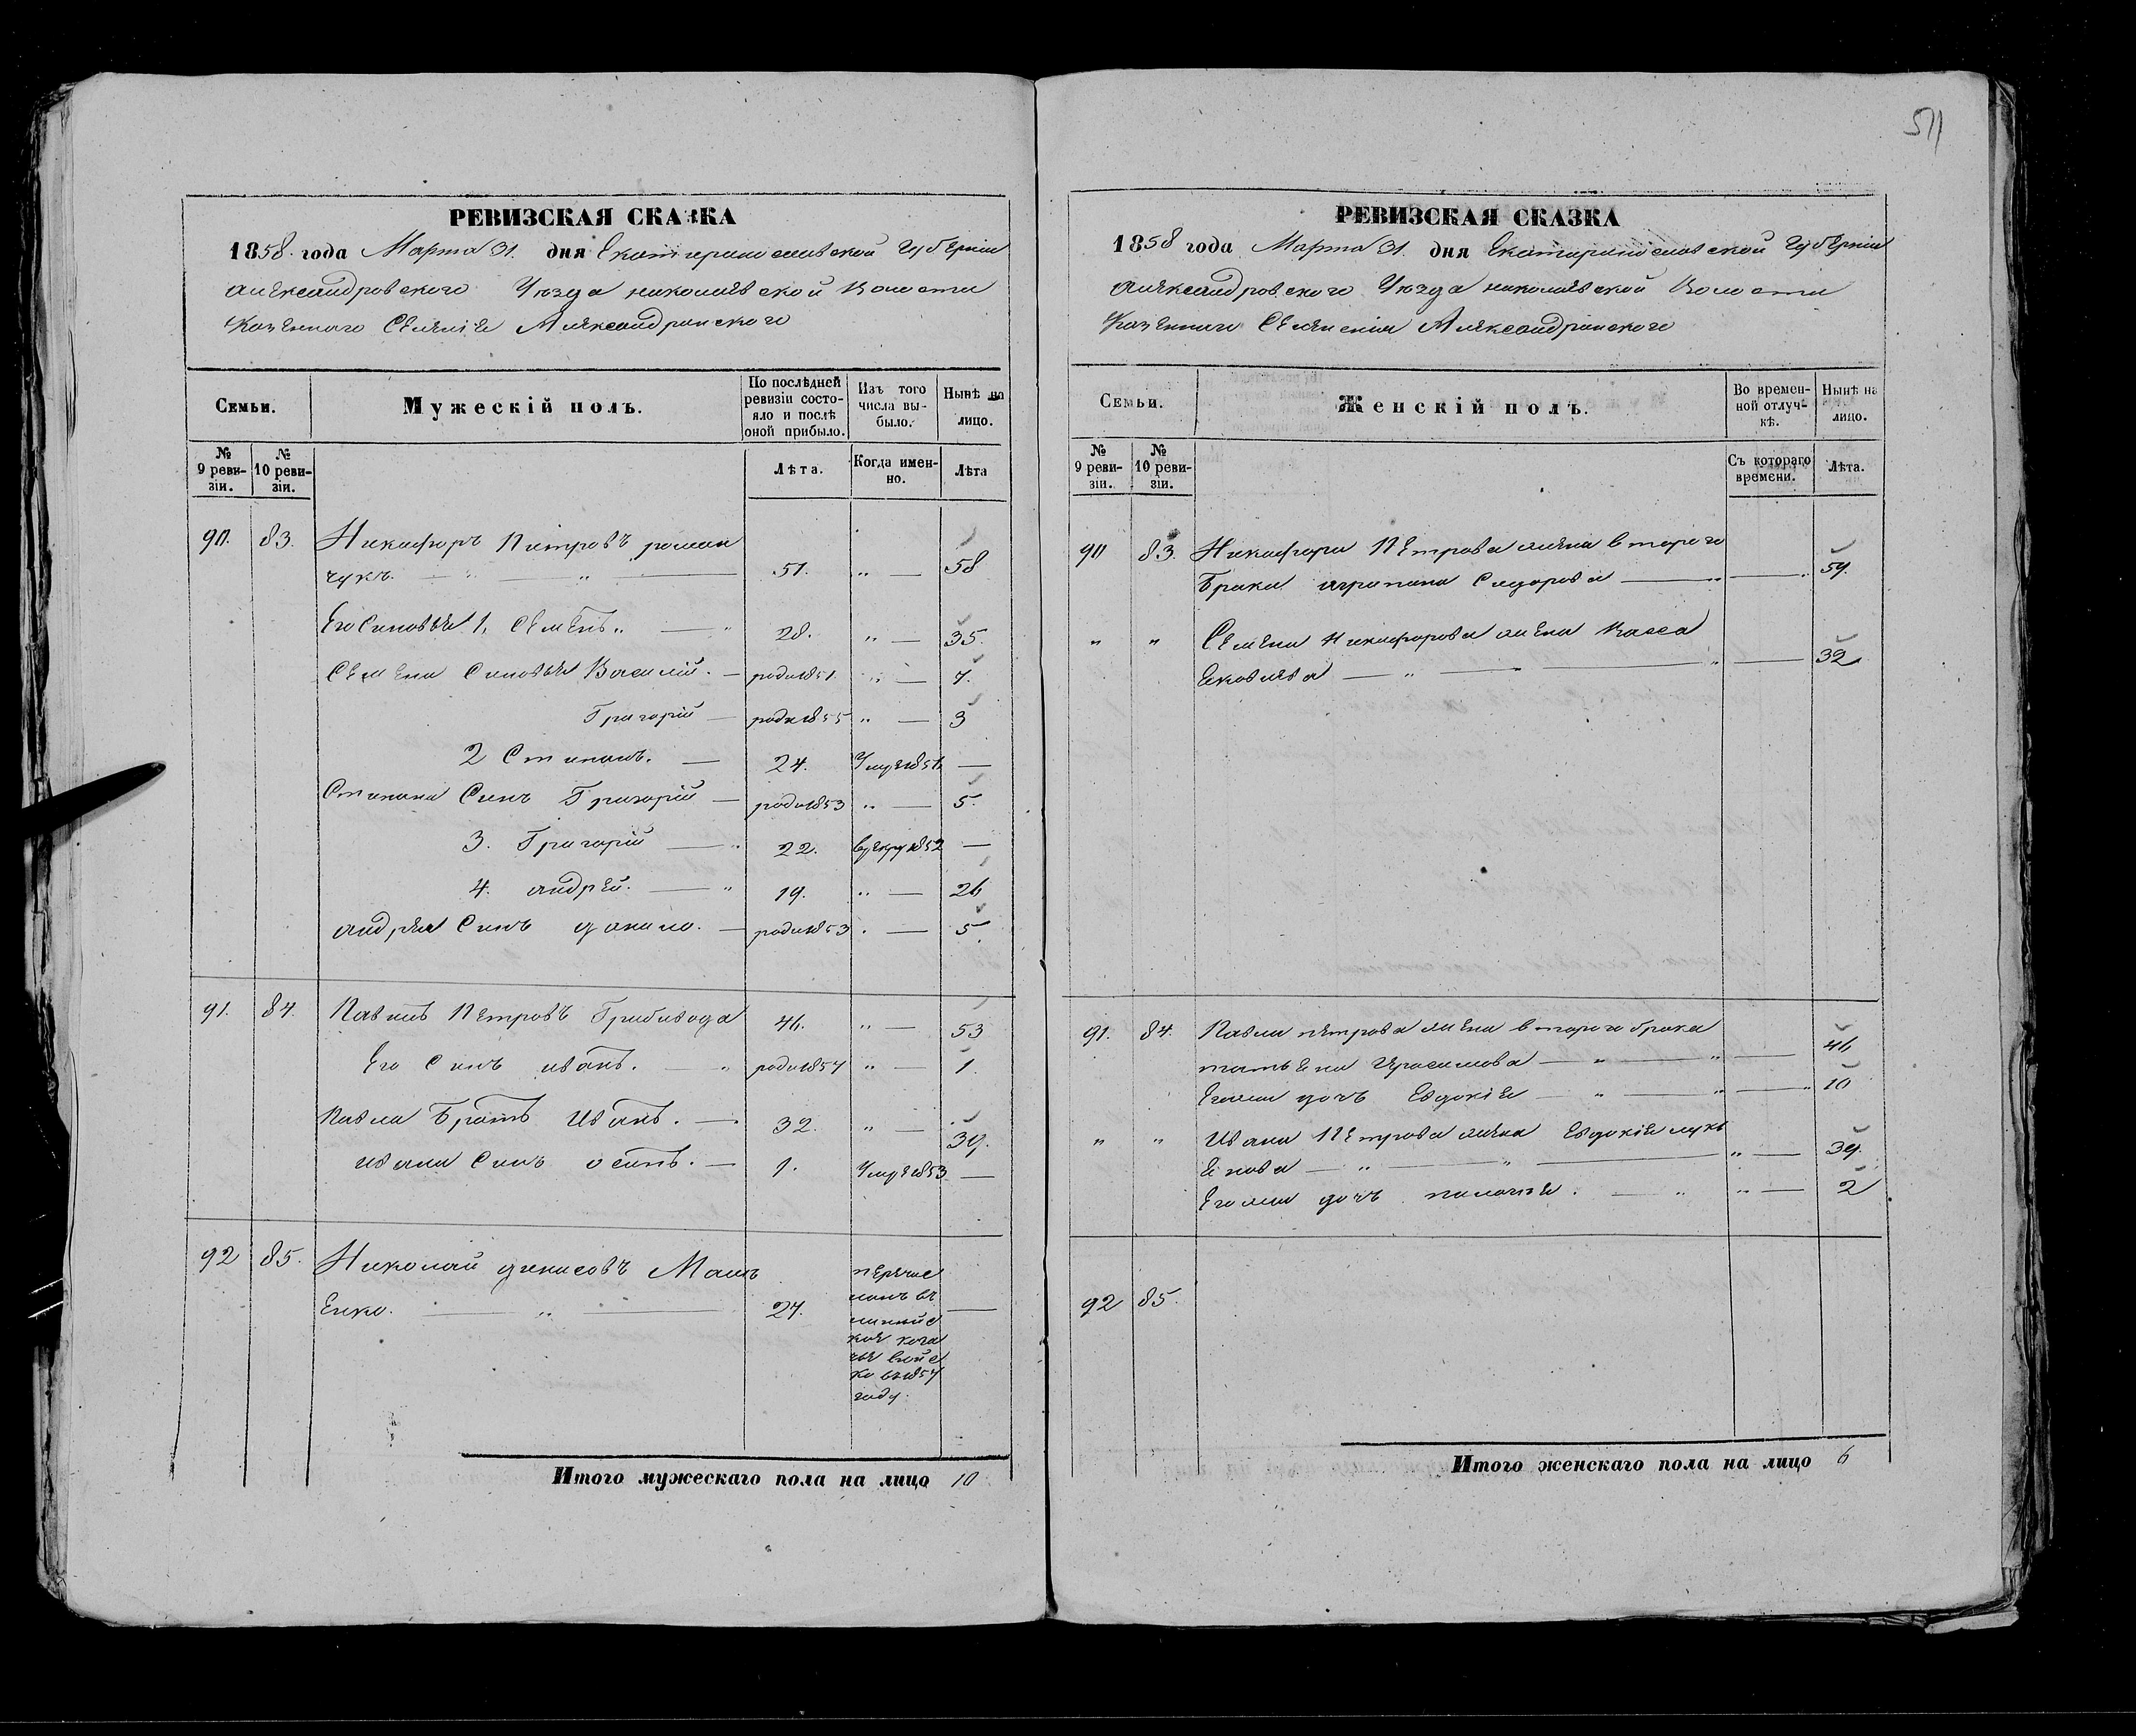 511
РЕВИЗСКАЯ СКАЗКА
1858. года Марта 31. дня Екатеринославской Губернiи
Александровского Уѣзда николаевской Волости
Казенного Селенiе Александринского
Семьи.
Мужескiй полъ.
По послѣдней ревизiи состояло и послѣ оной прибыло.
Изъ того числа выбыло.
Нынѣ на лицо.
№ 9 ревизiи.
№ 10 ревизiи.
Лѣта.
Когда именно.
Лѣта
90. 83. Никифоръ Петровъ роман
чукъ. 51. „ — 58
Его Сыновья 1, Семенъ. 28. „ — 35.
Семена Сыновья Василiй. — роди1851 „ — 7.
Григорiй — роди1855 „ — 3
2 Степанъ. — 24. Умре —
Степана Сынъ Григорiй — роди1853 „ — 5.
3. Григорiй — 22. 1852 —
4. андрей. — 19. „ — 26
андрея Сынъ данило. — роди1853 . — 5.
91. 84. Павелъ Петровъ Грибивода 46. „ — 53
Его Сынъ иванъ. — роди1857 „ — 1.
Павла Братъ Иванъ. — 32. „ — 39.
ивана Сынъ осипъ. — 1. Умре1853 —
92 85. Николай денисовъ Маш
енко. 27. перечис
ланъ въ
кое каза
чье войс
ко въ1857
году.
—
Итого мужескаго пола на лицо 10
РЕВИЗСКАЯ СКАЗКА
1858 года Марта 31. дня Екатеринославской Губернiи
Александровского Уѣзда николаевской Волости
Казенного Селенiя Александринского
Семьи.
Женскiй полъ.
Во временной отлучкѣ.
Нынѣ на лицо.
№ 9 ревизiи.
№ 10 ревизiи.
Съ котораго времени.
Лѣта.
90 83. Никифора Петрова жена второго
Брака агрипина Сидорова — 59.
„ „ Семена Никифорова жена Васса
Яковлева — 32
91. 84. Павла петрова жена второго брака
татьяна Герасимова — 46
Егожа дочъ Евдокiя — 10
„ „ Ивана Петрова жена Евдокiя лукъ
янова — „ — 39.
Егожа дочъ пелагея. — „ — 2
92 85.
Итого женскаго пола на лицо 6